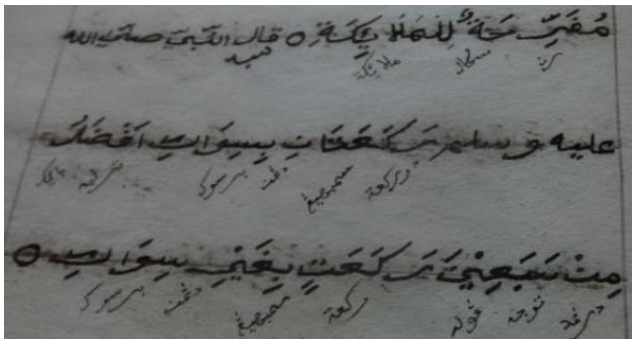 مُفَرِّحَةٌ لِلْمَلَائِكَةِ ○ قال النبي صلى الله
سكل ملائكة سبد
عليه وسلم رَكَعَتَانِ بِسِوَاكِ اَفْضَلُ
دوركعة سمبهيڠ دڠن برسوك
مِنْ سَبَعِيْنَ رَكَعَتٍ بِغَيْرِ سِوَاكِ ○
درفد توجه ڤوله ركعة سمبهيڠ برسوك